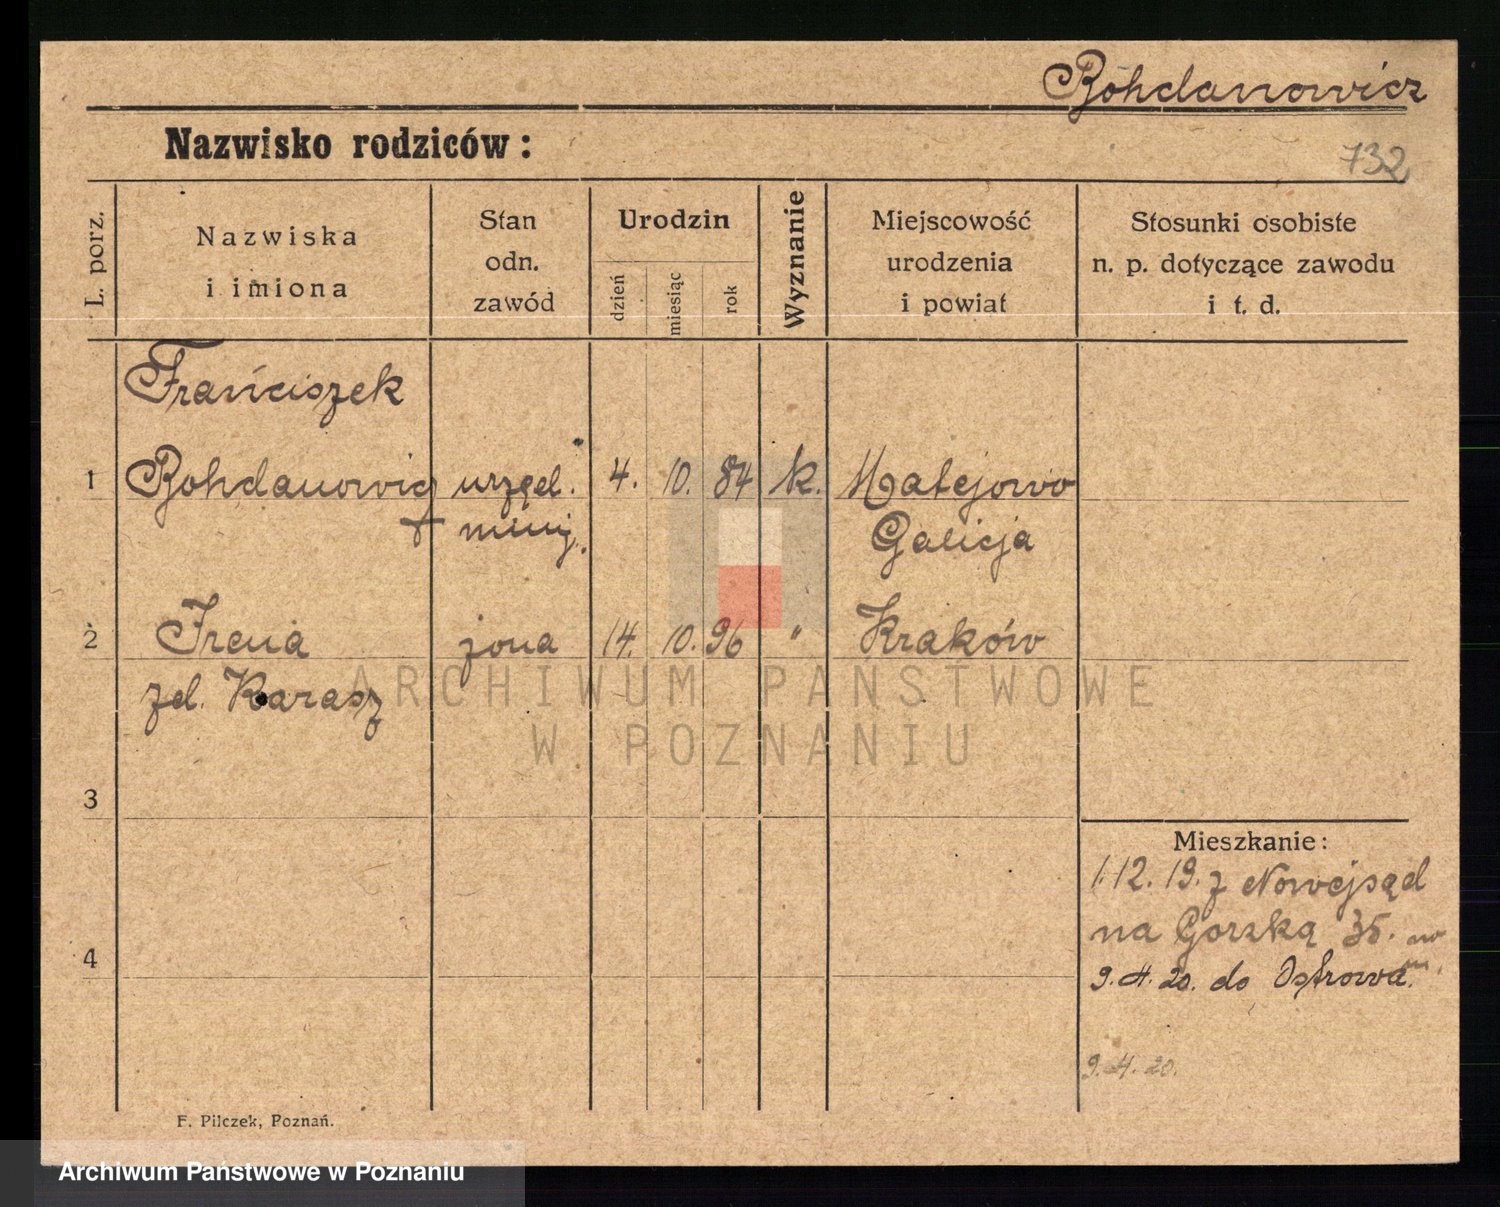 Bohdanowicz
Nazwisko rodziców:
732
L. porz.
Nazwiska
i imiona
Stan
odn.
zawód
Urodzin
dzień
miesiąc
rok
Wyznanie
Miejscowość
urodzenia
i powiat
Stosunki osobiste
n. p. dotyczące zawodu
i t. d.
Franciszek
1 Bohdanowicz urzęd. 4. 10. 84 k. Matejowo
+ minij. Galicja
2 Irena żona 14. 10. 96 " Kraków
zd. Karasz
ARCHIWUM PAŃSTWOWE
W POZNANIU
3
Mieszkanie:
1.12.19. z Nowejsąd
na Gorzką 35.
4
9.4.20. do Ostrowa
9.4.20.
F. Pilczek, Poznań.
Archiwum Państwowe w Poznaniu